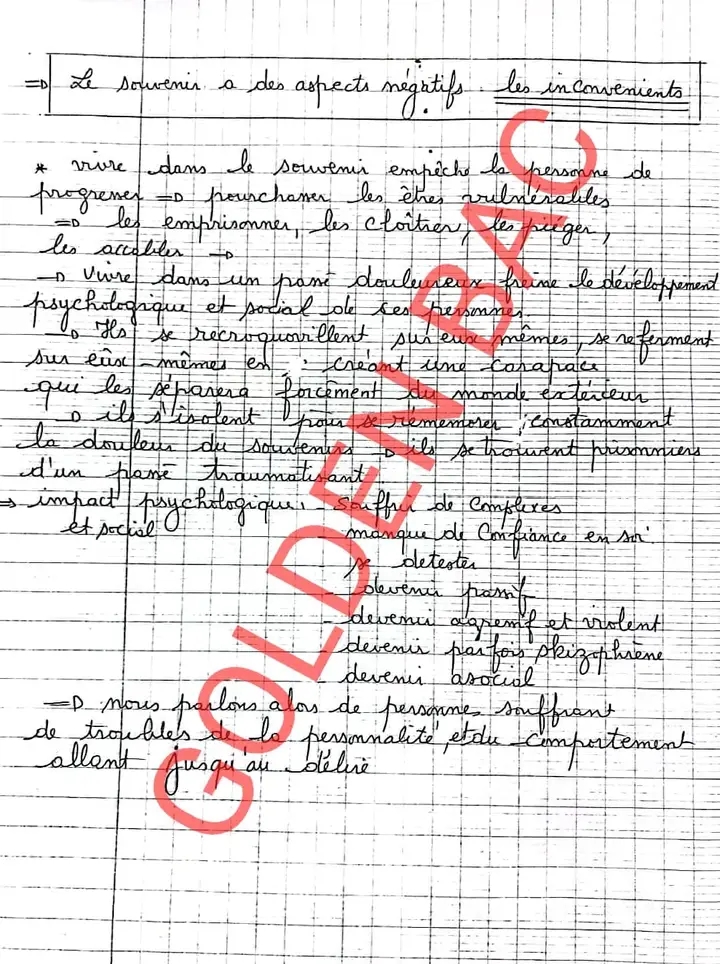 => Le souvenir a des aspects négatifs. les inconvenients
* vivre dans le souvenir empêche la personne de
progresser => pourchasser les êtres vulnérables
=> les emprisonner, les cloîtrer, les piéger,
les accabler →
→ Vivre dans un passé douleureux freine le développement
psychologique et social de ces personnes.
→ Ils se recroquevillent sur eux mêmes, se referment
sur eux-mêmes en : créant une carapace
qui les séparera forcément du monde extérieur
→ ils s'isolent pour se rémemorer, constamment
la douleur du souvenirs → ils se trouvent prisonniers
d'un passé traumatisant
→ impact psychologique. - Souffrir de complexes
et social - manque de Confiance en soi.
- se detester
- devenir passif
- devenir agressif et violent
- devenir parfois skizophrène
- devenir asocial
=> nous parlons alors de personnes souffrant
de troubles de la personnalité, et du comportement
allant jusqu'au délire
GOLDEN BAC